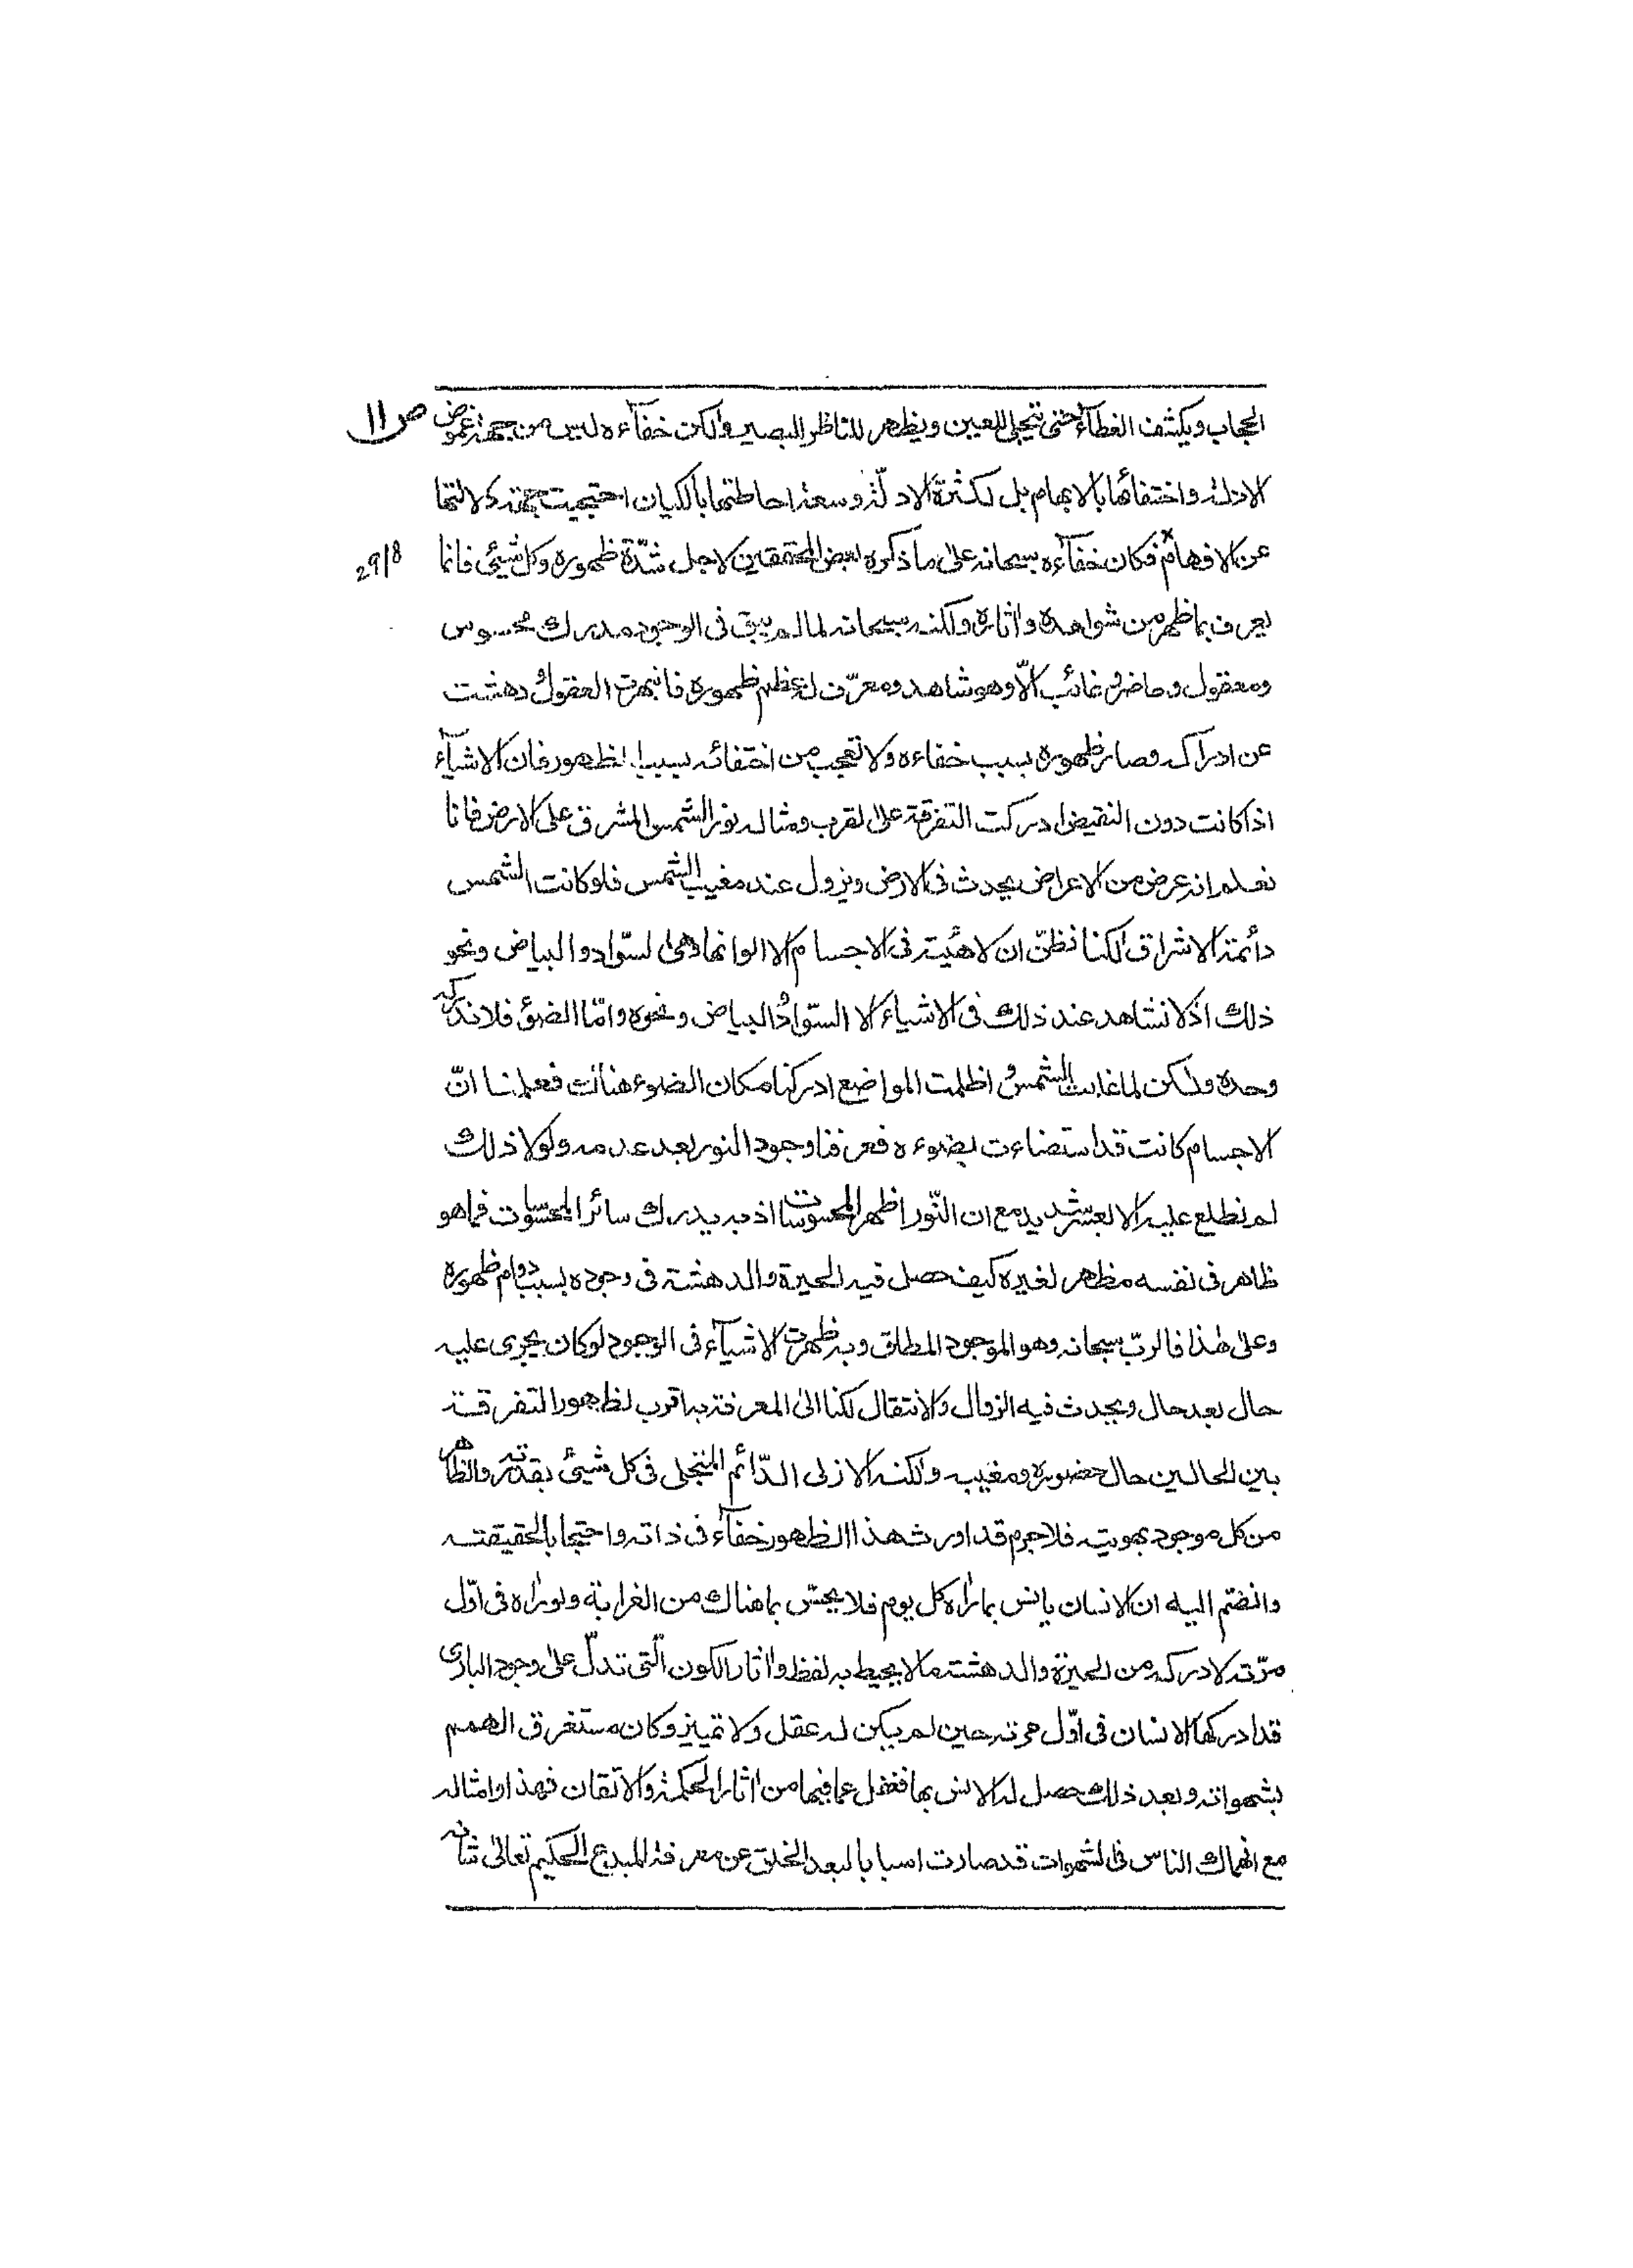 الحجاب ويكشف الغطآء حتى تتجلى للعين ويظهر للناظر البصير ولكن خفآءه ليس من جهة غموض ص١١
الادلة واختفائها بالابهام بل لكثرة الادلّة وسعة احاطتها بالكيان احتجبت جهة دلالتها
عن الافهام فكان خفآءه سبحانه على ما ذكره بعض المحققين لاجل شدّة ظهوره وكل شيئ فانما 29/8
يعرف بما ظهر من شواهده واثاره ولكنه سبحانه لما لم يبق فى الوجود مدرك محسوس
ومعقول وحاضر وغائب الّا وهو شاهد ومعرّف لعظيم ظهوره فانبهرت العقول ودهشت
عن ادراكه وصار ظهوره بسبب خفاءه ولا تعجب من اختفائه بسبب الظهور فان الاشيآء
اذا كانت دون النقيض ادركت التفرقة على لقرب ومثاله نور الشمس المشرق على الارض فانا
نعلم انه عرض من الاعراض يحدث فى الارض ويزول عند مغيب الشمس فلو كانت الشمس
دائمة الاشراق لكنا نظنّ ان لا هيئة فى الاجسام الا الوانها وهى السّواد والبياض ونحو
ذلك اذ لا نشاهد عند ذلك فى الاشياء الا السّواد والبياض ونحوه وامّا الضوء فلا ندركه
وحده ولكن لما غابت الشمس واظلمت المواضع ادركنا مكان الضوء هناك فعلمنا انّ
الاجسام كانت قد استضاءت بضوءه فعرفنا وجود النور بعد عدمه ولولا ذلك
لم نطلع عليه الا لعسر شديد مع ان النّور اظهر المحسوسات اذ به يدرك سائر المحسوسات فما هو
ظاهر فى نفسه مظهر لغيره كيف حصل فيه الحيرة والدهشة فى وجوده بسبب دوام ظهوره
وعلى هٰذا فالربّ سبحانه وهو الموجود المطلق وبه ظهرت الاشيآء فى الوجود لو كان يجرى عليه
حال بعد حال ويحدث فيه الزوال والانتقال لكنا الى المعرفة به اقرب لظهور التفرقة
بين الحالين حال حضوره ومغيبه ولكنه الازلى الدّائم المتجلى فى كل شيئ بقدرته والظاهر
من كل موجود بهويته فلا جرم قد اورث هذا الظهور خفآء فى ذاته واحتجابا لحقيقته
وانضمّ اليه ان الانسان يانس بما يراه كل يوم فلا يحسّ بما هناك من الغرابة ولو راٰه فى اوّل
مرّته لادركه من الحيرة والدهشة ما لا يحيط به لفظ واثار الكون الّتى تدلّ على وجود البارى
قد ادركها الانسان فى اوّل مرته حين لم يكن له عقل ولا تمييز وكان مستغرق الهمم
بشهواته وبعد ذلك حصل له الانس بها فغفل عما فيها من اٰثار الحكمة والاتقان فهذا وامثاله
مع انهماك الناس فى الشهوات قد صارت اسبابا لبعد الخلق عن معرفة المبدع الحكيم تعالى شانه